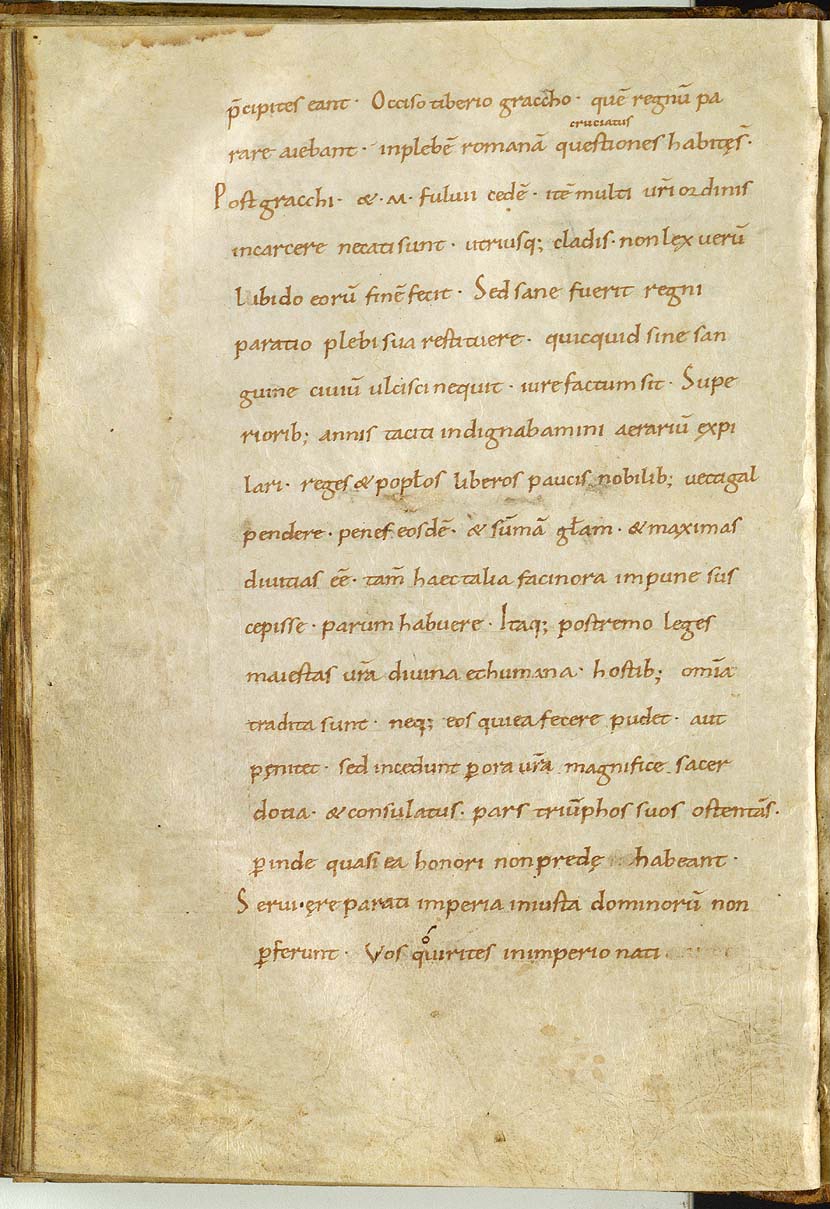 p̄cipites eant · Occiso tiberio graccho · quē regnū pa
cruciatus
rare aiebant · inplebē romanā questiones habitęs̄ ·
Post gracchi · & · M · fuluii cedē · itē multi ur̄i ordinis
incarcere necati sunt · utriusq; cladis · non lex uerū
Libido eorū finē fecit · Sed sane fuerit regni
paratio plebi sua restituere · quicquid sine san
guine ciuiū ulcisci nequit · iure factum sit · Supe
riorib; annis taciti indignabamini aerariū ęxpi
lari · reges & popłos liberos paucis nobilib; uectigal
pendere · penes eosdē · & sūmā gła̅m · & maximas
diuitias eē · tam̄ haec talia facinora impune sus
cepisse · parum habuere · Itaq; postremo leges
maiestas ur̄a diuina et humana · hostib; omīa
tradita sunt · neq; eos qui ea fecere pudet · aut
pęnitet · sed incedunt ꝑ ora ur̄a magnifice sacer
dotia · & consulatus · pars triūphos suos ostentās̄ ·
ꝑinde quasi ea honori non predę habeant ·
Serui · ęre parati imperia iniusta dominorū non
ꝑferunt · Vos qͦuirites in imperio nati